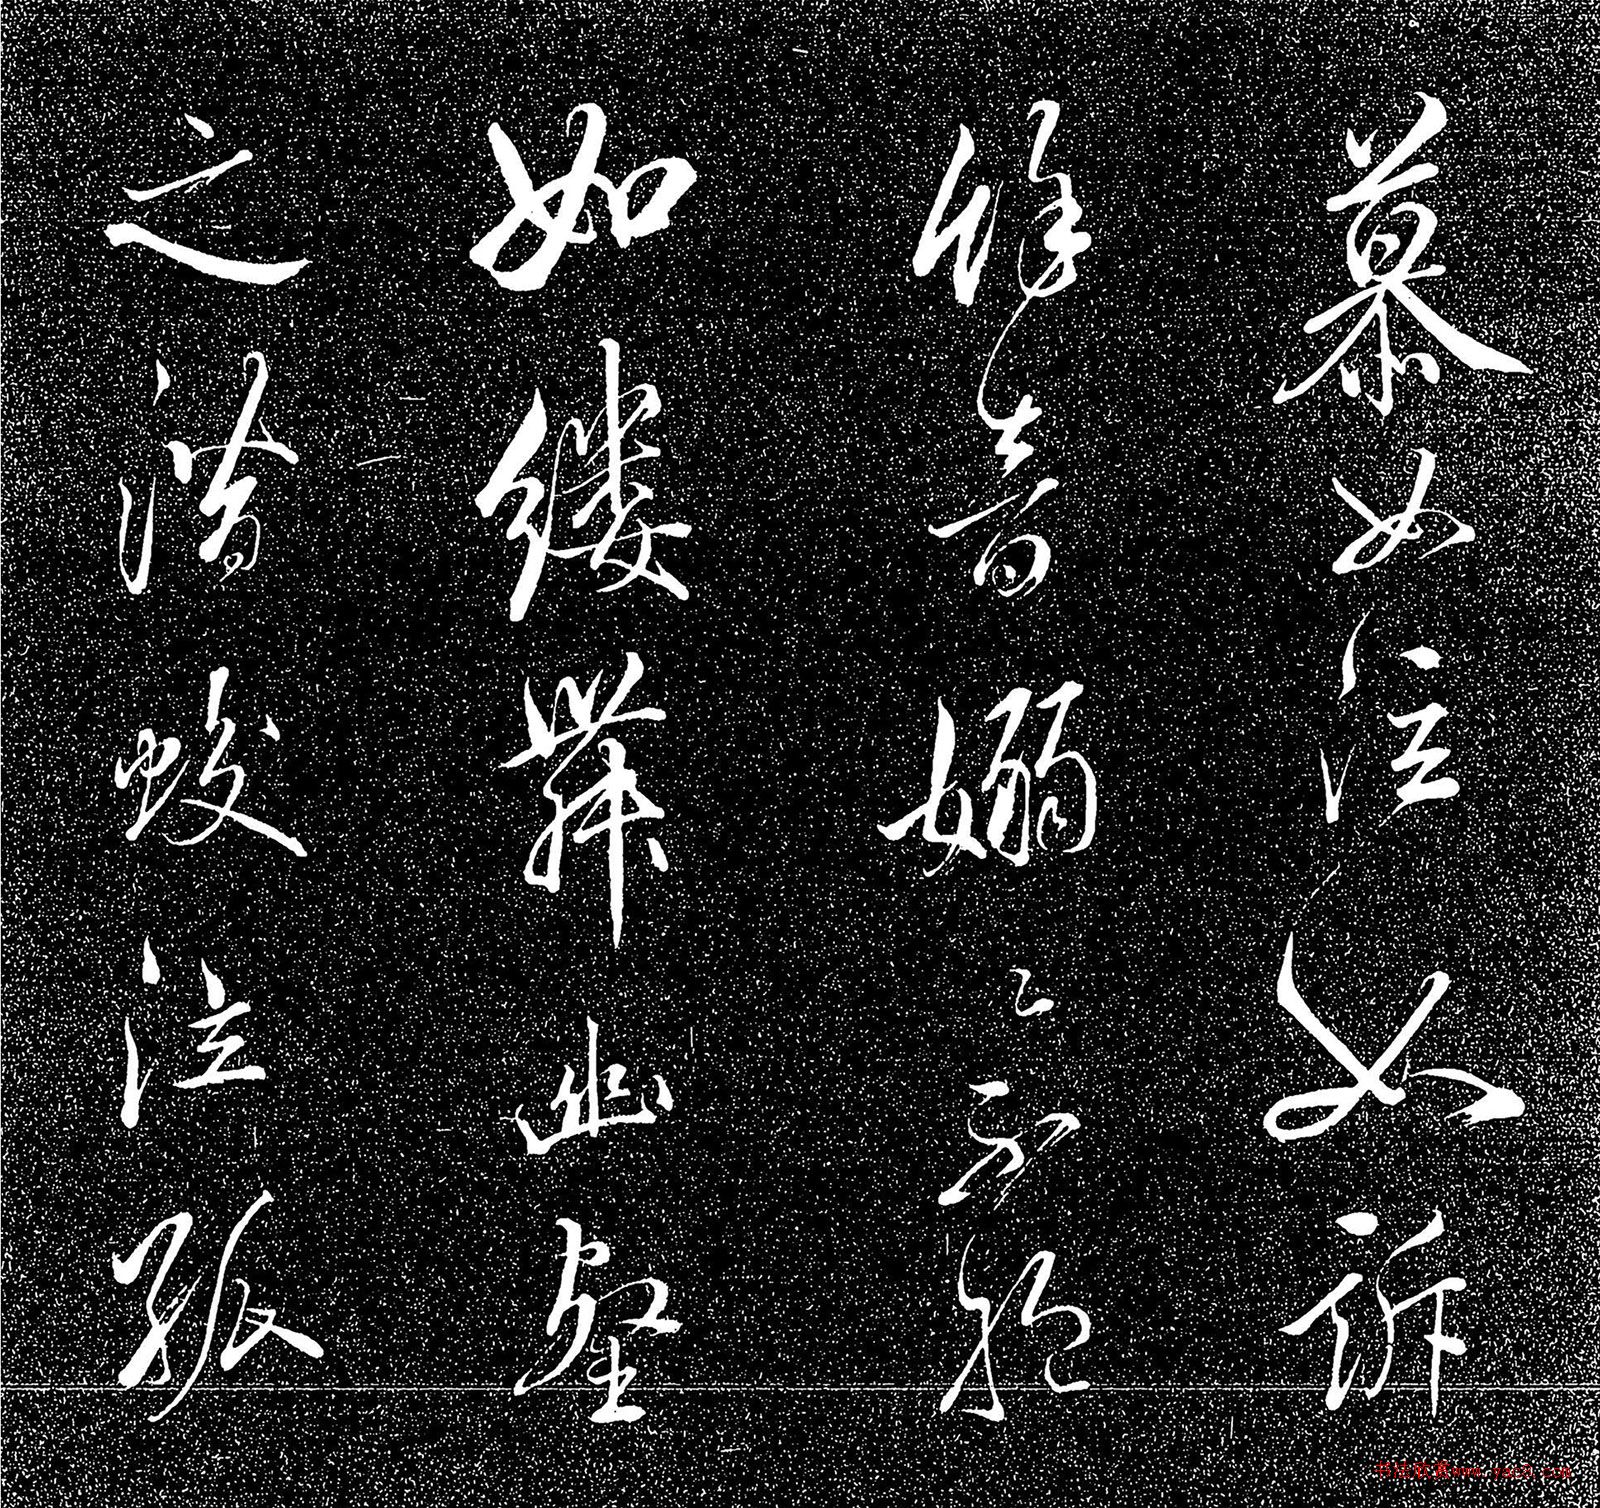 慕如泣如訴
餘音嫋々不絶
如縷舞幽壑
之潜蛟泣孤
书法欣赏www.yac8.com